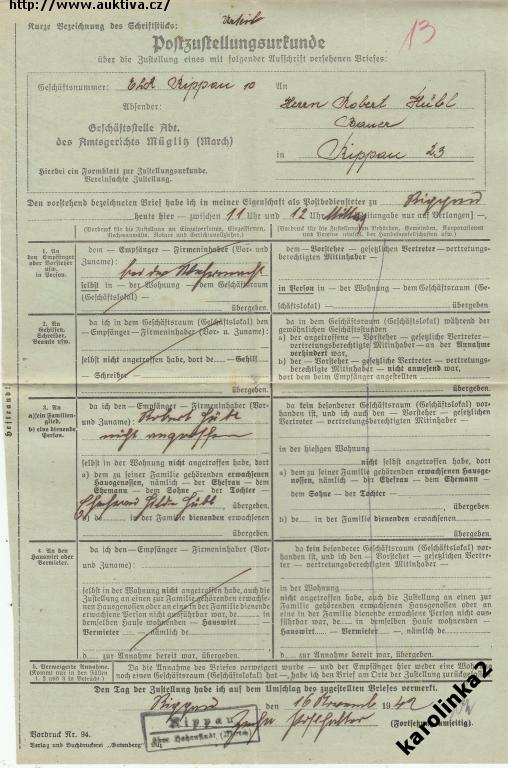 http://www.auktiva.cz/
Kurze Bezeichnung des Schriftstücks:
13
Postzustellungsurkunde
über die Zustellung eines mit folgender Aufschrift versehenen Briefes:
Geschäftsnummer: Rippau 10
An
Herrn Robert Hübl
Absender:
Bauer
Geschäftsstelle Abt.
des Amtsgerichts Müglitz (March)
in Rippau 23
Hierbei ein Formblatt zur Zustellungsurkunde.
Vereinfachte Zustellung.
Den vorstehend bezeichneten Brief habe ich in meiner Eigenschaft als Postbediensteter zu Rippau
heute hier — zwischen 11 Uhr und 12 Uhr Mittag (Zeitangabe nur auf Verlangen) —,
1. An
den Empfänger
oder Vorsteher
usw.
in Person.
dem — Empfänger — Firmeninhaber (Vor- und
Zuname):
bei der Wehrmacht
selbst — in der Wohnung — dem Geschäftsraum
(Geschäftslokal) —
übergeben.
dem — Vorsteher — gesetzlichen Vertreter — vertretungs-
berechtigten Mitinhaber —
in Person — in der Wohnung — dem Geschäftsraum (Ge-
schäftslokal) —
übergeben.
2. An
Gehilfen,
Schreiber,
Beamte usw.
da ich in dem Geschäftsraum (Geschäftslokal) den
— Empfänger — Firmeninhaber (Vor- u. Zuname):
selbst nicht angetroffen habe, dort de — Gehilf
— Schreiber
übergeben.
da in dem Geschäftsraum (Geschäftslokal) während der
gewöhnlichen Geschäftsstunden
a) der angetroffene — Vorsteher — gesetzliche Vertreter —
vertretungsberechtigte Mitinhaber — an der Annahme
verhindert war,
b) der — Vorsteher — gesetzliche Vertreter — vertretungs-
berechtigte Mitinhaber — nicht anwesend war,
dort dem beim Empfänger angestellten
übergeben.
bestrand:
3. An
a) ein Familien-
glied,
b) eine dienende
Person.
da ich den — Empfänger — Firmeninhaber (Vor-
und Zuname): Robert Hübl
nicht angetroffen
selbst in der Wohnung nicht angetroffen habe, dort
a) dem zu seiner Familie gehörenden erwachsenen
Hausgenossen, nämlich — der Ehefrau — dem
Ehemann — dem Sohne — der Tochter
Ehefrau Hilda Hübl übergeben.
b) de in der Familie dienenden erwachsenen
übergeben.
da kein besonderer Geschäftsraum (Geschäftslokal) vor-
handen ist, und ich auch den — Vorsteher — gesetzlichen
Vertreter — vertretungsberechtigten Mitinhaber —
in der hiesigen Wohnung
nicht selbst angetroffen habe, dort
a) dem zu seiner Familie gehörenden erwachsenen Hausge-
nossen, nämlich — der Ehefrau — dem Ehemann —
dem Sohne — der Tochter —
übergeben.
b) de in der Familie dienenden erwachsenen
übergeben.
4. An den
Hauswirt oder
Vermieter.
da ich den — Empfänger — Firmeninhaber (Vor-
und Zuname):
selbst in der Wohnung nicht angetroffen habe, auch die
Zustellung an einen zur Familie gehörenden erwachse-
nen Hausgenossen oder an eine in der Familie dienende
erwachsene Person nicht ausführbar war, de
in demselben Hause wohnenden — Hauswirt
Vermieter — nämlich de
d zur Annahme bereit war, übergeben.
da kein besonderer Geschäftsraum (Geschäftslokal) vor-
handen ist, und ich den — Vorsteher — gesetzlichen Vertre-
ter — vertretungsberechtigten Mitinhaber —
in der Wohnung
nicht angetroffen habe, auch die Zustellung an einen zur
Familie gehörenden erwachsenen Hausgenossen oder an
eine in der Familie dienende erwachsene Person nicht aus-
führbar war, de in demselben Hause wohnenden
Hauswirt — Vermieter —, nämlich de
d zur Annahme bereit war, übergeben.
5. Verweigerte Annahme.
(Kommt nur in den Fällen
1, 2 und 3 in Betracht)
Da die Annahme des Briefes verweigert wurde — und der Empfänger hier weder eine Wohn-
noch einen Geschäftsraum (Geschäftslokal) hat —, habe ich den Brief am Orte der Zustellung zurückge
Den Tag der Zustellung habe ich auf dem Umschlag des zugestellten Briefes vermerkt.
Rippau, den 16 November 1942
Rippau
über Hohenstadt (March)
(Fortsetzung umseitig).
Vordruck Nr. 94.
Verlag und Buchdruckerei „Gutenberg“
karolinka2